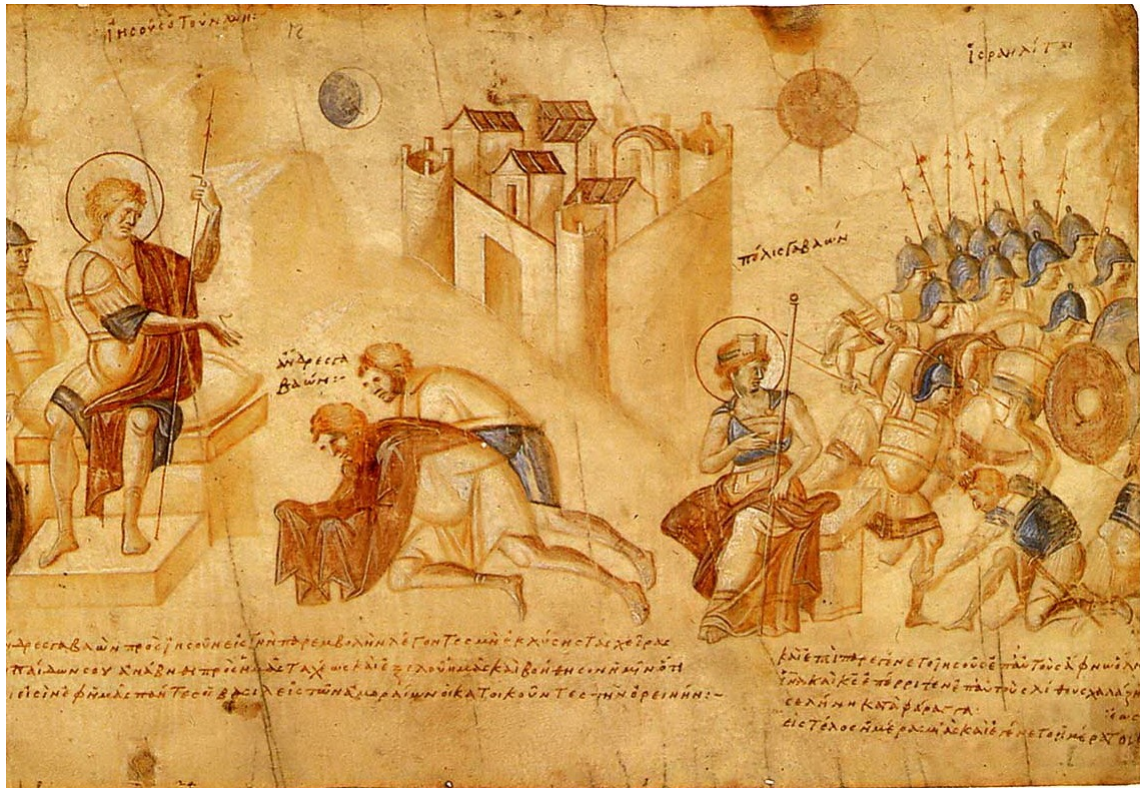 ἰησοῦς ὁ τοῦ ναυή:
ἰσραηλίται
πόλις γαβαών
ἄνδρες γα
βαών:~
δρες γαβαὼν πρὸς ἰησοῦν εἰς τὴν παρεμβολὴν λέγοντες μὴ ἐκλύσης τὰς χεῖρας
παίδων σου ἀνάβηθι πρὸς ἡμᾶς ταχέως καὶ ἐξελοῦ ἡμᾶς καὶ βοήθησον ἡμῖν ὅτι
εἰσὶν ἐφ ἡμᾶς πάντες οἱ βασιλεῖς τῶν ἀμοραίων οἱ κατοικοῦντες τὴν ὀρεινήν:~
καὶ ἐπιπαρεγένετο ἰησοῦς ἐπ αὐτοὺς ἄφνω ὅλην
καὶ κς ἐπέρριψεν ἐπ αὐτοὺς λίθους χαλάζης
σελήνη κατὰ φάραγγα ἕως
εἰς τέλος ἡμέρας μιᾶς καὶ ἐγένετο ἡμέρα